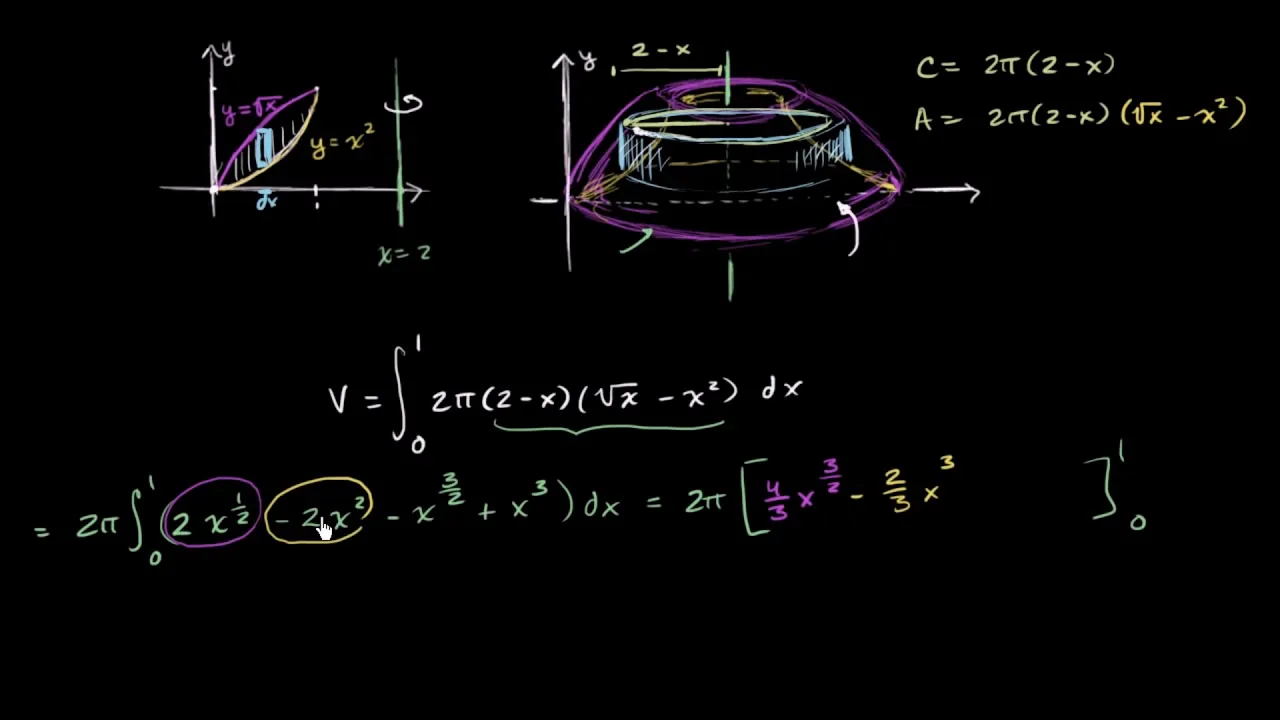 y
y = √x
y = x²
dx
x = 2
2 - x
y
C = 2π(2 - x)
A = 2π(2-x)(√x - x²)
V = ∫₀¹ 2π(2-x)(√x - x²) dx
= 2π ∫₀¹ (2 x^(1/2) - 2x² - x^(3/2) + x³) dx = 2π [4/3 x^(3/2) - 2/3 x³ ]₀¹